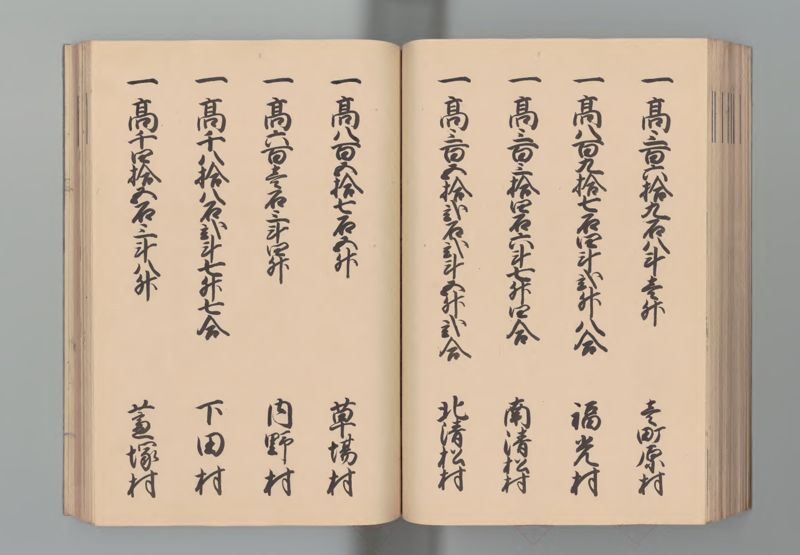 一 高三百六拾九石八斗壱升 壱町原村
一 高八百九拾七石四斗弐升八合 福光村
一 高三百三拾四石六斗七升四合 南清松村
一 高三百五拾弐石弐斗五升弐合 北清松村
一 高八百五拾七石五升 草場村
一 高六百壱石三斗四升 内野村
一 高千八拾八石弐斗七升七合 下田村
一 高千四拾五石三斗八升 塚村